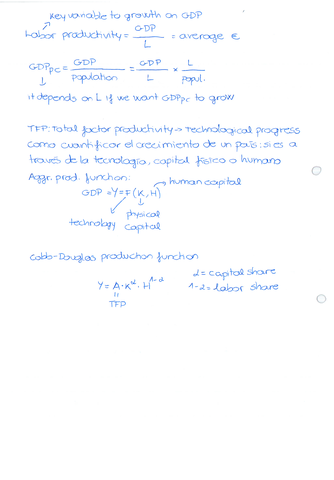 Key variable to growth on GDP
Labor productivity = GDP / L = average €
GDPpc = GDP / population = GDP / L × L / popul.
it depends on L if we want GDPpc to grow
TFP: Total factor productivity → Technological progress
como cuantificar el crecimiento de un país: si es a
través de la tecnología, capital físico o humano
Aggr. prod. function:
→ human capital
GDP = Y = F(K, H)
technology physical capital
Cobb-Douglas production function
Y = A · K^α · H^1-α
α = capital share
1-α = labor share
TFP